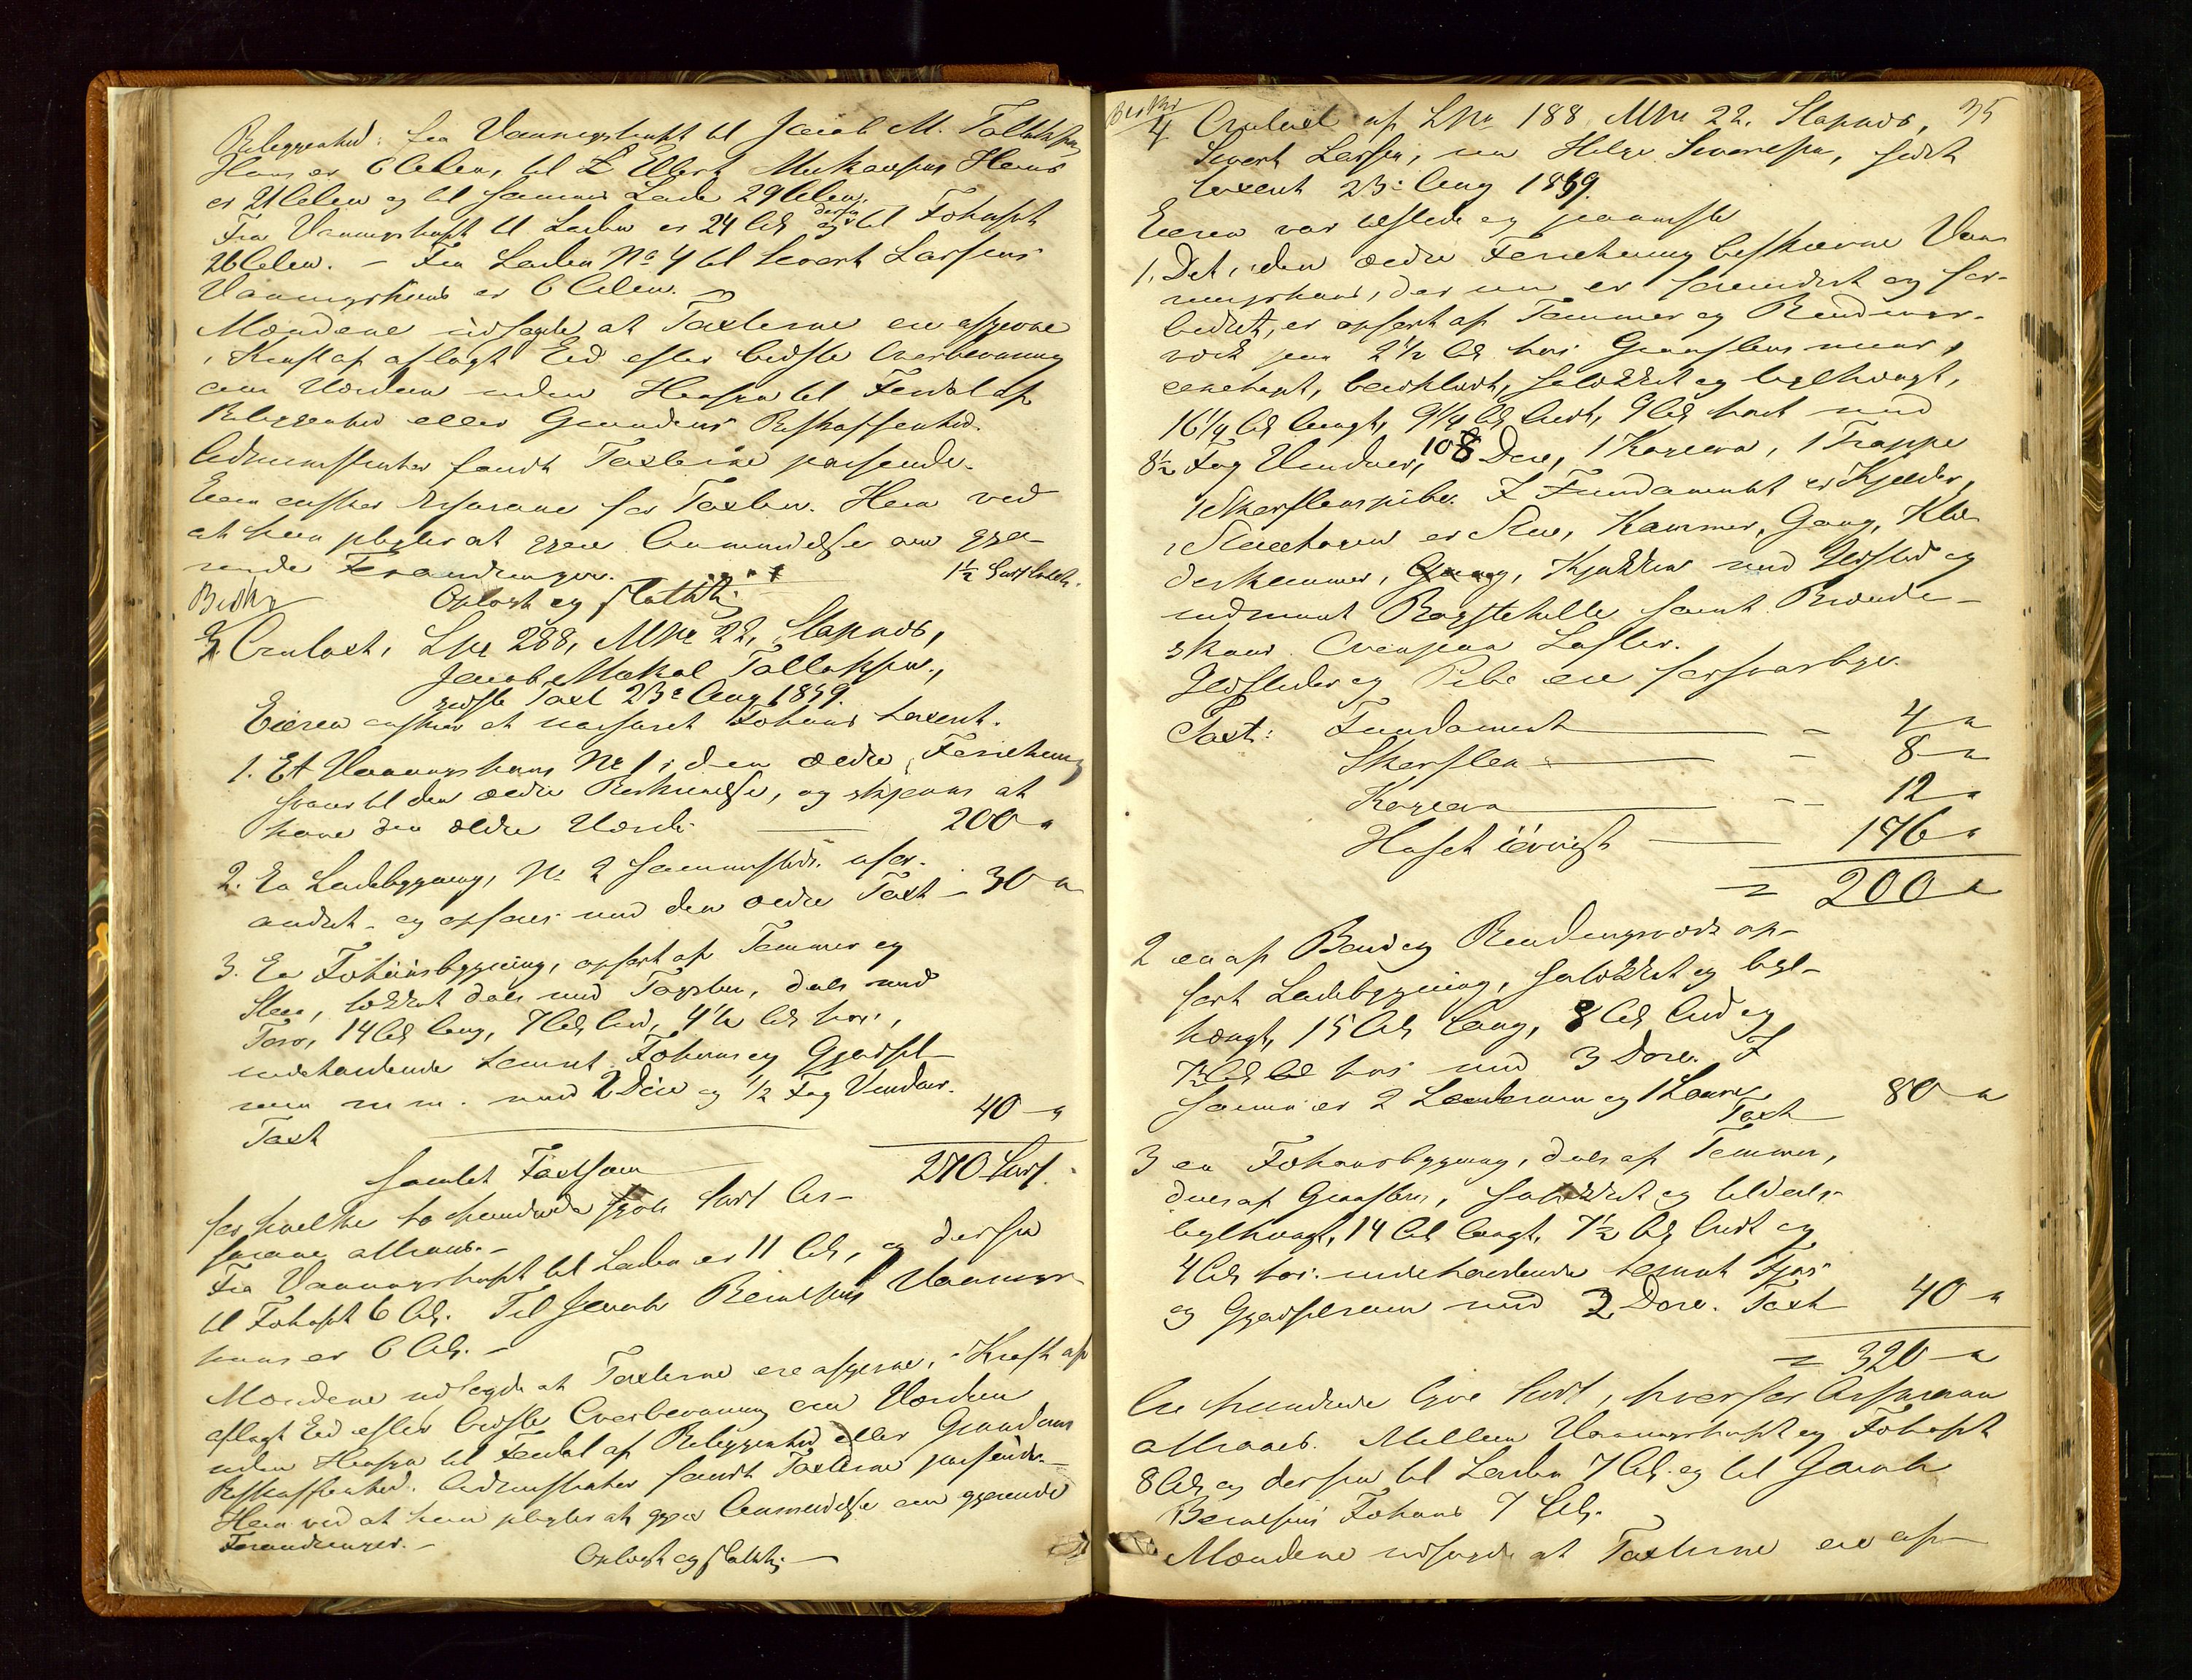 Beliggenhed: fra Vaaningshuset til Jacob M. Tollaksens
Huus er 6 Alen, til Ellert Mikkelsens Huus
er 21 Alen og til samme Lade 29 Alen.
Fra Vaaningshuset til Laden er 24 Al. og derfra til Fæhuset
26 Alen. – Fra Laden No 4 til Sivert Larsens
Vaaningshuus er 6 Alen. –
Mændene udsagde at Taxterne ere afgivne
i Kraft af aflagt Eed efter bedste Overbeviisning
om Værdien uden Hensyn til Fordel af
Beliggenhed eller Grundens Beskaffenhed.
Administrator fandt Taxterne passende.
Eieren ønsker Assurance for Taxten. Han ved
at han pligter at gjøre Anmeldelse om gjø-
rende Forandringer. 1½
Oplæst og sluttet.
Beskr
3. Omtaxt, Lnr 288, Mnr 22, Slapnæs,
Jacob Mikal Tollaksen,
sidste Taxt 23de Aug 1859.
Eieren ønsker et uassureret Fæhuus taxeret.
1. Et Vaaningshuus No 1 i den ældre Forretning
svarer til den ældre Beskrivelse, og skjønnes at
have den ældre Værdi — 200 "
2. En Ladebygning, No 2 sammesteds. ufor-
andret – og opføres med den ældre Taxt – 30 "
3. En Fæhuusbygning, opført af Tømmer og
Steen, tækket deels med Tagsteen, deels med
Torv, 14 Al. lang, 7 Al. bred, 4½ Al. høi,
indeholdende tømret Fæhuus og Gjødsel-
rum m. m. med 2 Døre og ½ Fag Vinduer.
Taxt — 40 "
Samlet Taxtsum — 270
for hvilke to hundrede
surance attraaes. –
Fra Vaaningshuset til Laden er 11 Al., og derfra
til Fæhuset 6 Al. Til Jacob Vaanings-
huus er 6 Al. –
Mændene udsagde at Taxterne ere afgivne, i Kraft af
aflagt Eed efter bedste Overbeviisning om Værdien
uden Hensyn til Fordel af Beliggenhed eller Grundens
Beskaffenhed. Administrator fandt Taxterne passende. –
Han ved at han pligter at gjøre Anmeldelse om gjørende
Forandringer. –
Oplæst og sluttet. —
Beskr 35
4 Omtaxt af Lnr 188 Mnr 22. Slapnæs,
Sivert Larsen, nu Helge Sivertsen, sidst
taxeret 23de Aug 1859.
Eieren var tilstede og paaviiste
1. Det i den ældre Forretning beskrevne Vaa-
ningshuus, der nu er forandret og for-
bedret, er opført af Tømmer og Bindings-
værk paa 2½ Al. høi Graasteens muur,
panelet, bordklædt, sutækket og teglhængt,
16¼ Al. langt, 9¼ Al. bredt, 9 Al. høit med
8½ Fag Vinduer, 10 Døre, 1 Kogeovn, 1 Trappe
1 Skorsteenspibe. I Fundamentet er Kjelder,
i Stueetagen er Stue, Kammer, Gang, Klæ-
dekammer, Kjøkken med Ildsted og
indmuret Bagstehelle samt Brænde-
skuur. Ovenpaa Lofter.
Ildsteder og Pibe ere forsvarlige.
Taxt: Fundament — 4 "
Skorsteen — 8 "
Kogeovn — 12 "
Huset iövrigt — 176 "
= 200 "
2 en af Bord og Bindingsværk op-
ført Ladebygning, sutækket og tegl-
hængt, 15 Al. lang, 8 Al. bred og
7½ Al. høi med 3 Døre. I
samme er 2 Laderum og 1 Laave
Taxt — 80 "
3 en Fæhuusbygning, deels af Tømmer,
deels af Graasteen, sutækket og tildeels
teglhængt, 14 Al. langt, 7½ Al. bredt og
4 Al. høi. indeholdende tømret Fjøs
og Gjødselrum med 2 Døre. Taxt — 40 "
= 320 "
tre hundrede tyve , hvorfor Assurance
attraaes. Mellem Vaaningshuset og Fæhuset
8 Al. og derfra til Laden 7 Al. og til Jacob
Fæhuus 7 Al.
Mændene udsagde at Taxterne ere af-